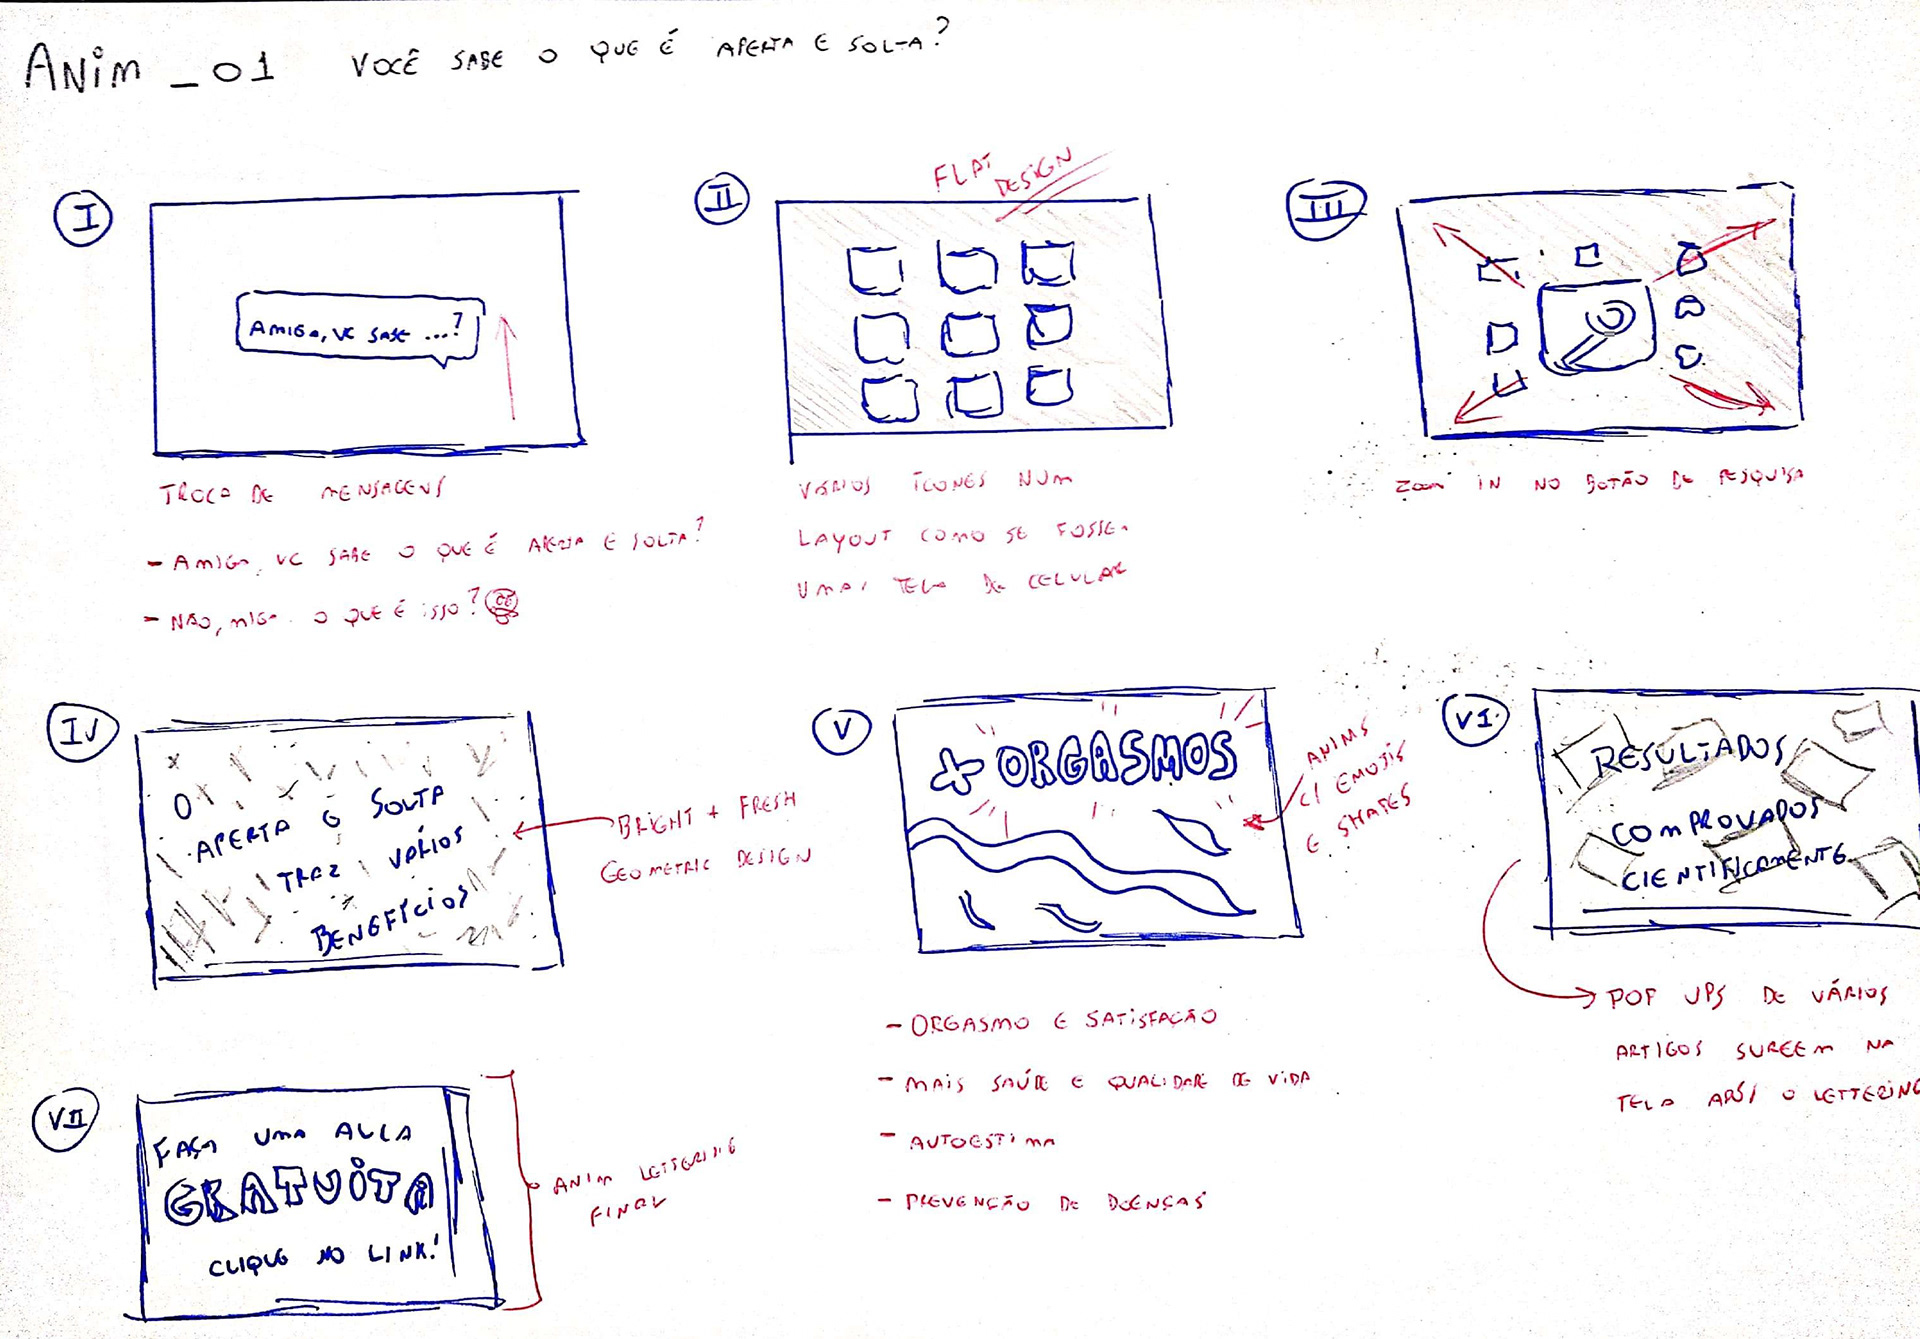 ANIM_01 VOCÊ SABE O QUE É APERTA E SOLTA?
I
AMIGA, VC SABE ...?
TROCA DE MENSAGENS
- AMIGA, VC SABE O QUE É APERTA E SOLTA?
- NÃO, MIGA. O QUE É ISSO?
II
FLAT
DESIGN
VÁRIOS ÍCONES NUM
LAYOUT COMO SE FOSSE
UMA TELA DE CELULAR
III
ZOOM IN NO BOTÃO DE PESQUISA
IV
O
APERTA E SOLTA
TRAZ VÁRIOS
BENEFÍCIOS
BRIGHT + FRESH
GEOMETRIC DESIGN
V
+ ORGASMOS
ANIMS
C/ EMOJIS
E SHAPES
- ORGASMO E SATISFAÇÃO
- MAIS SAÚDE E QUALIDADE DE VIDA
- AUTOESTIMA
- PREVENÇÃO DE DOENÇAS
VI
RESULTADOS
COMPROVADOS
CIENTIFICAMENTE
POP UPS DE VÁRIOS
ARTIGOS SURGEM NA
TELA APÓS O LETTERING
VII
FAÇA UMA AULA
GRATUITA
CLIQUE NO LINK!
ANIM LETTERING
FINAL